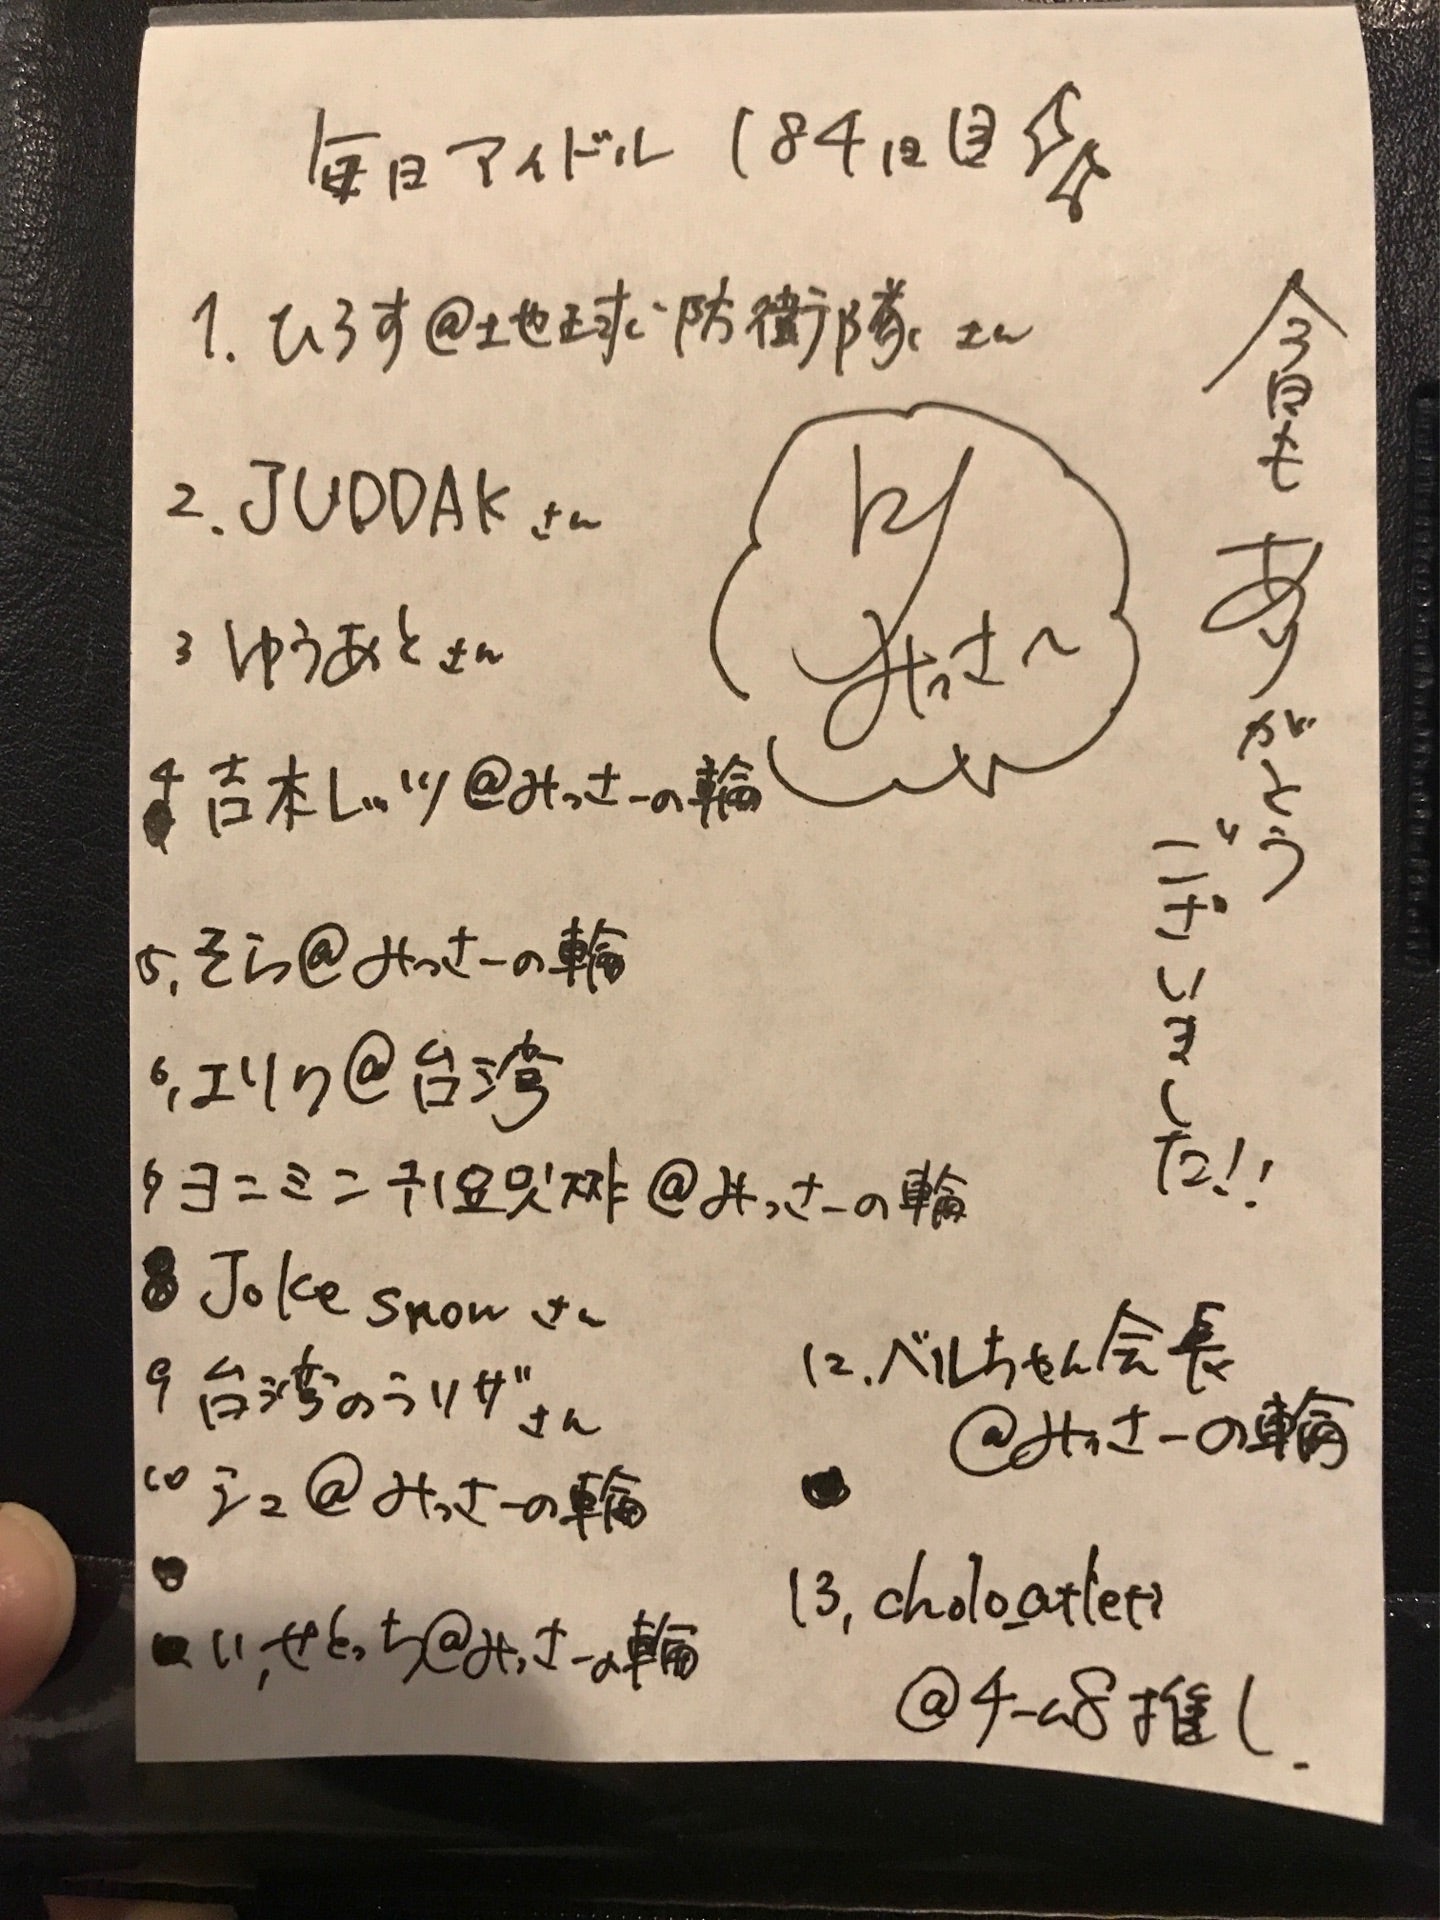 毎日アイドル 184回目
1. ひろす@地球防衛隊 さん
2. JUDDAK さん
3 ゆうあと さん
4 吉本レッツ@みっさーの輪
5, そら@みっさーの輪
6, エリック@台湾
ヨニミン 귀요밋짜 @みっさーの輪
8 Joke snow さん
9 台湾のうリザ さん
10 シュ@みっさーの輪
せとっち@みっさーの輪
12. ベルちゃん会長
@みっさーの輪
13, choloatleti
@チーム8推し.
みっさー
今日も ありがとう
ございました!!